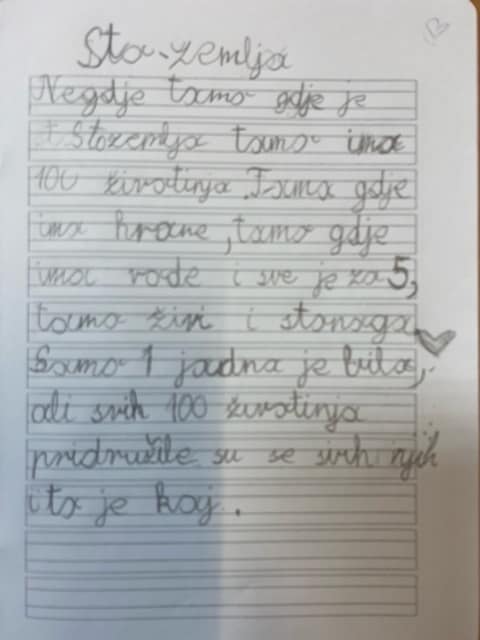 Sto-zemlja
Negdje tamo gdje je
Stozemlja tamo ima
100 životinja. Tamo gdje
ima hrane, tamo gdje
ima vode i sve je za 5,
tamo živi i stonoga
Samo 1 jadna je bila,
ali svih 100 životinja
pridružile su se svih njih
i to je kraj.